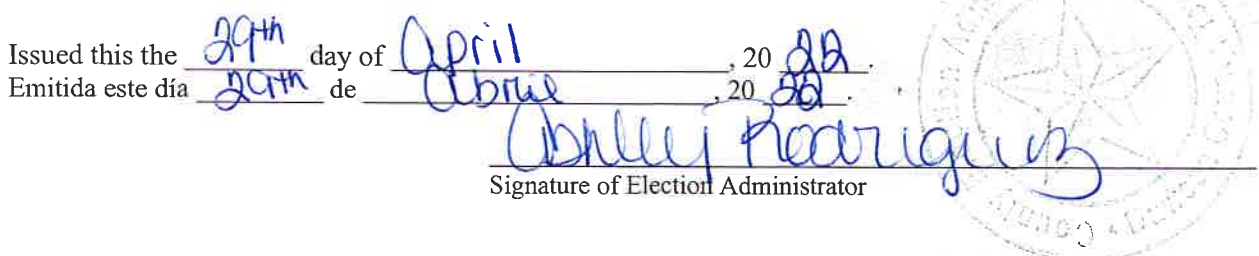 Issued this the 29th day of April, 2022.
Emitida este día 29th de Abril, 2022.
Ashley Rodriguez
Signature of Election Administrator
County